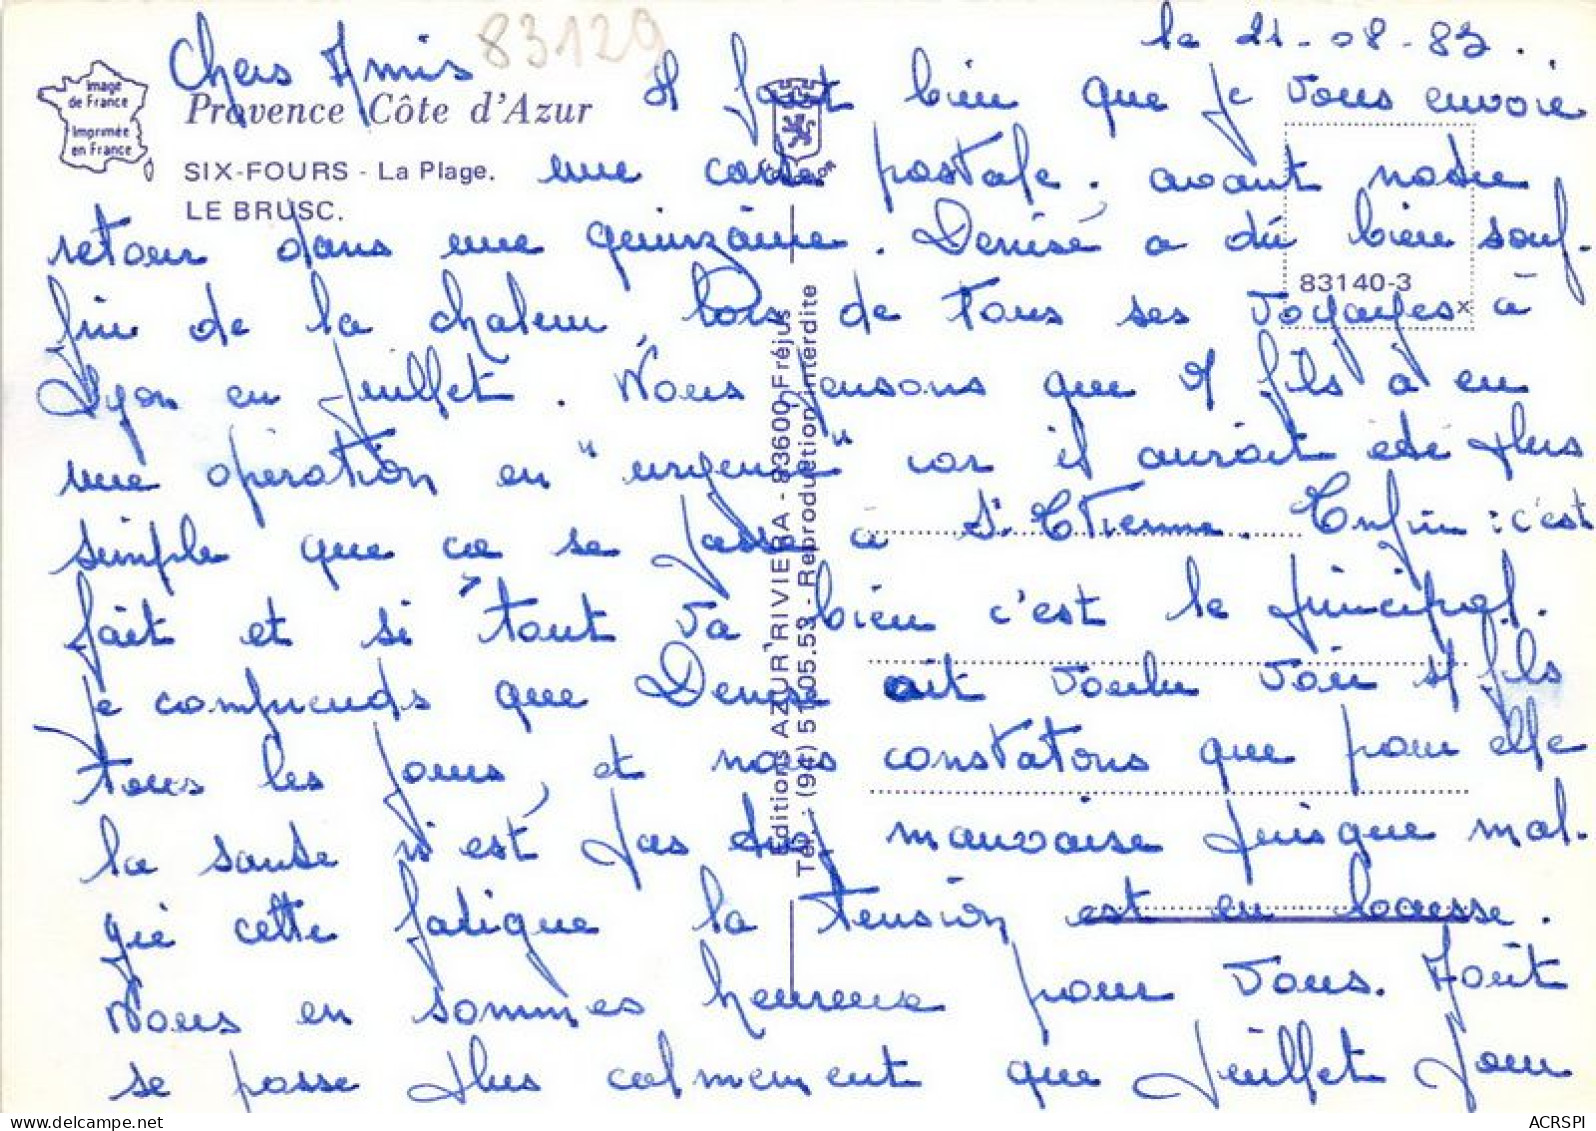 83129
le 21-08-83.
Chers Amis
Image
de France
Imprimée
en France
Provence Côte d'Azur
Il faut bien que je vous envoie
SIX-FOURS - La Plage.
LE BRUSC.
une carte postale, avant notre
retour dans une quinzaine. Denise a dû bien souf-
83140-3
x
frir de la chaleur, lors de tous ses voyages à
Lyon en juillet. Nous pensons que fils a eu
une opération en "urgence" car il aurait été plus
simple que ça se passe à St Etienne. Enfin : c'est
fait et si tout va bien c'est le principal.
je comprends que Denise ait voulu voir fils
tous les jours, et nous constatons que pour elle
la santé n'est pas mauvaise puisque mal-
gré cette fatigue la tension est en baisse.
Nous en sommes heureux pour vous. Août
se passe plus calmement que juillet pour
Editions AZUR RIVIERA - 83600 Fréjus
Tél. : (94) 51.05.53 - Reproduction interdite
ACRSPI
delcampe.net